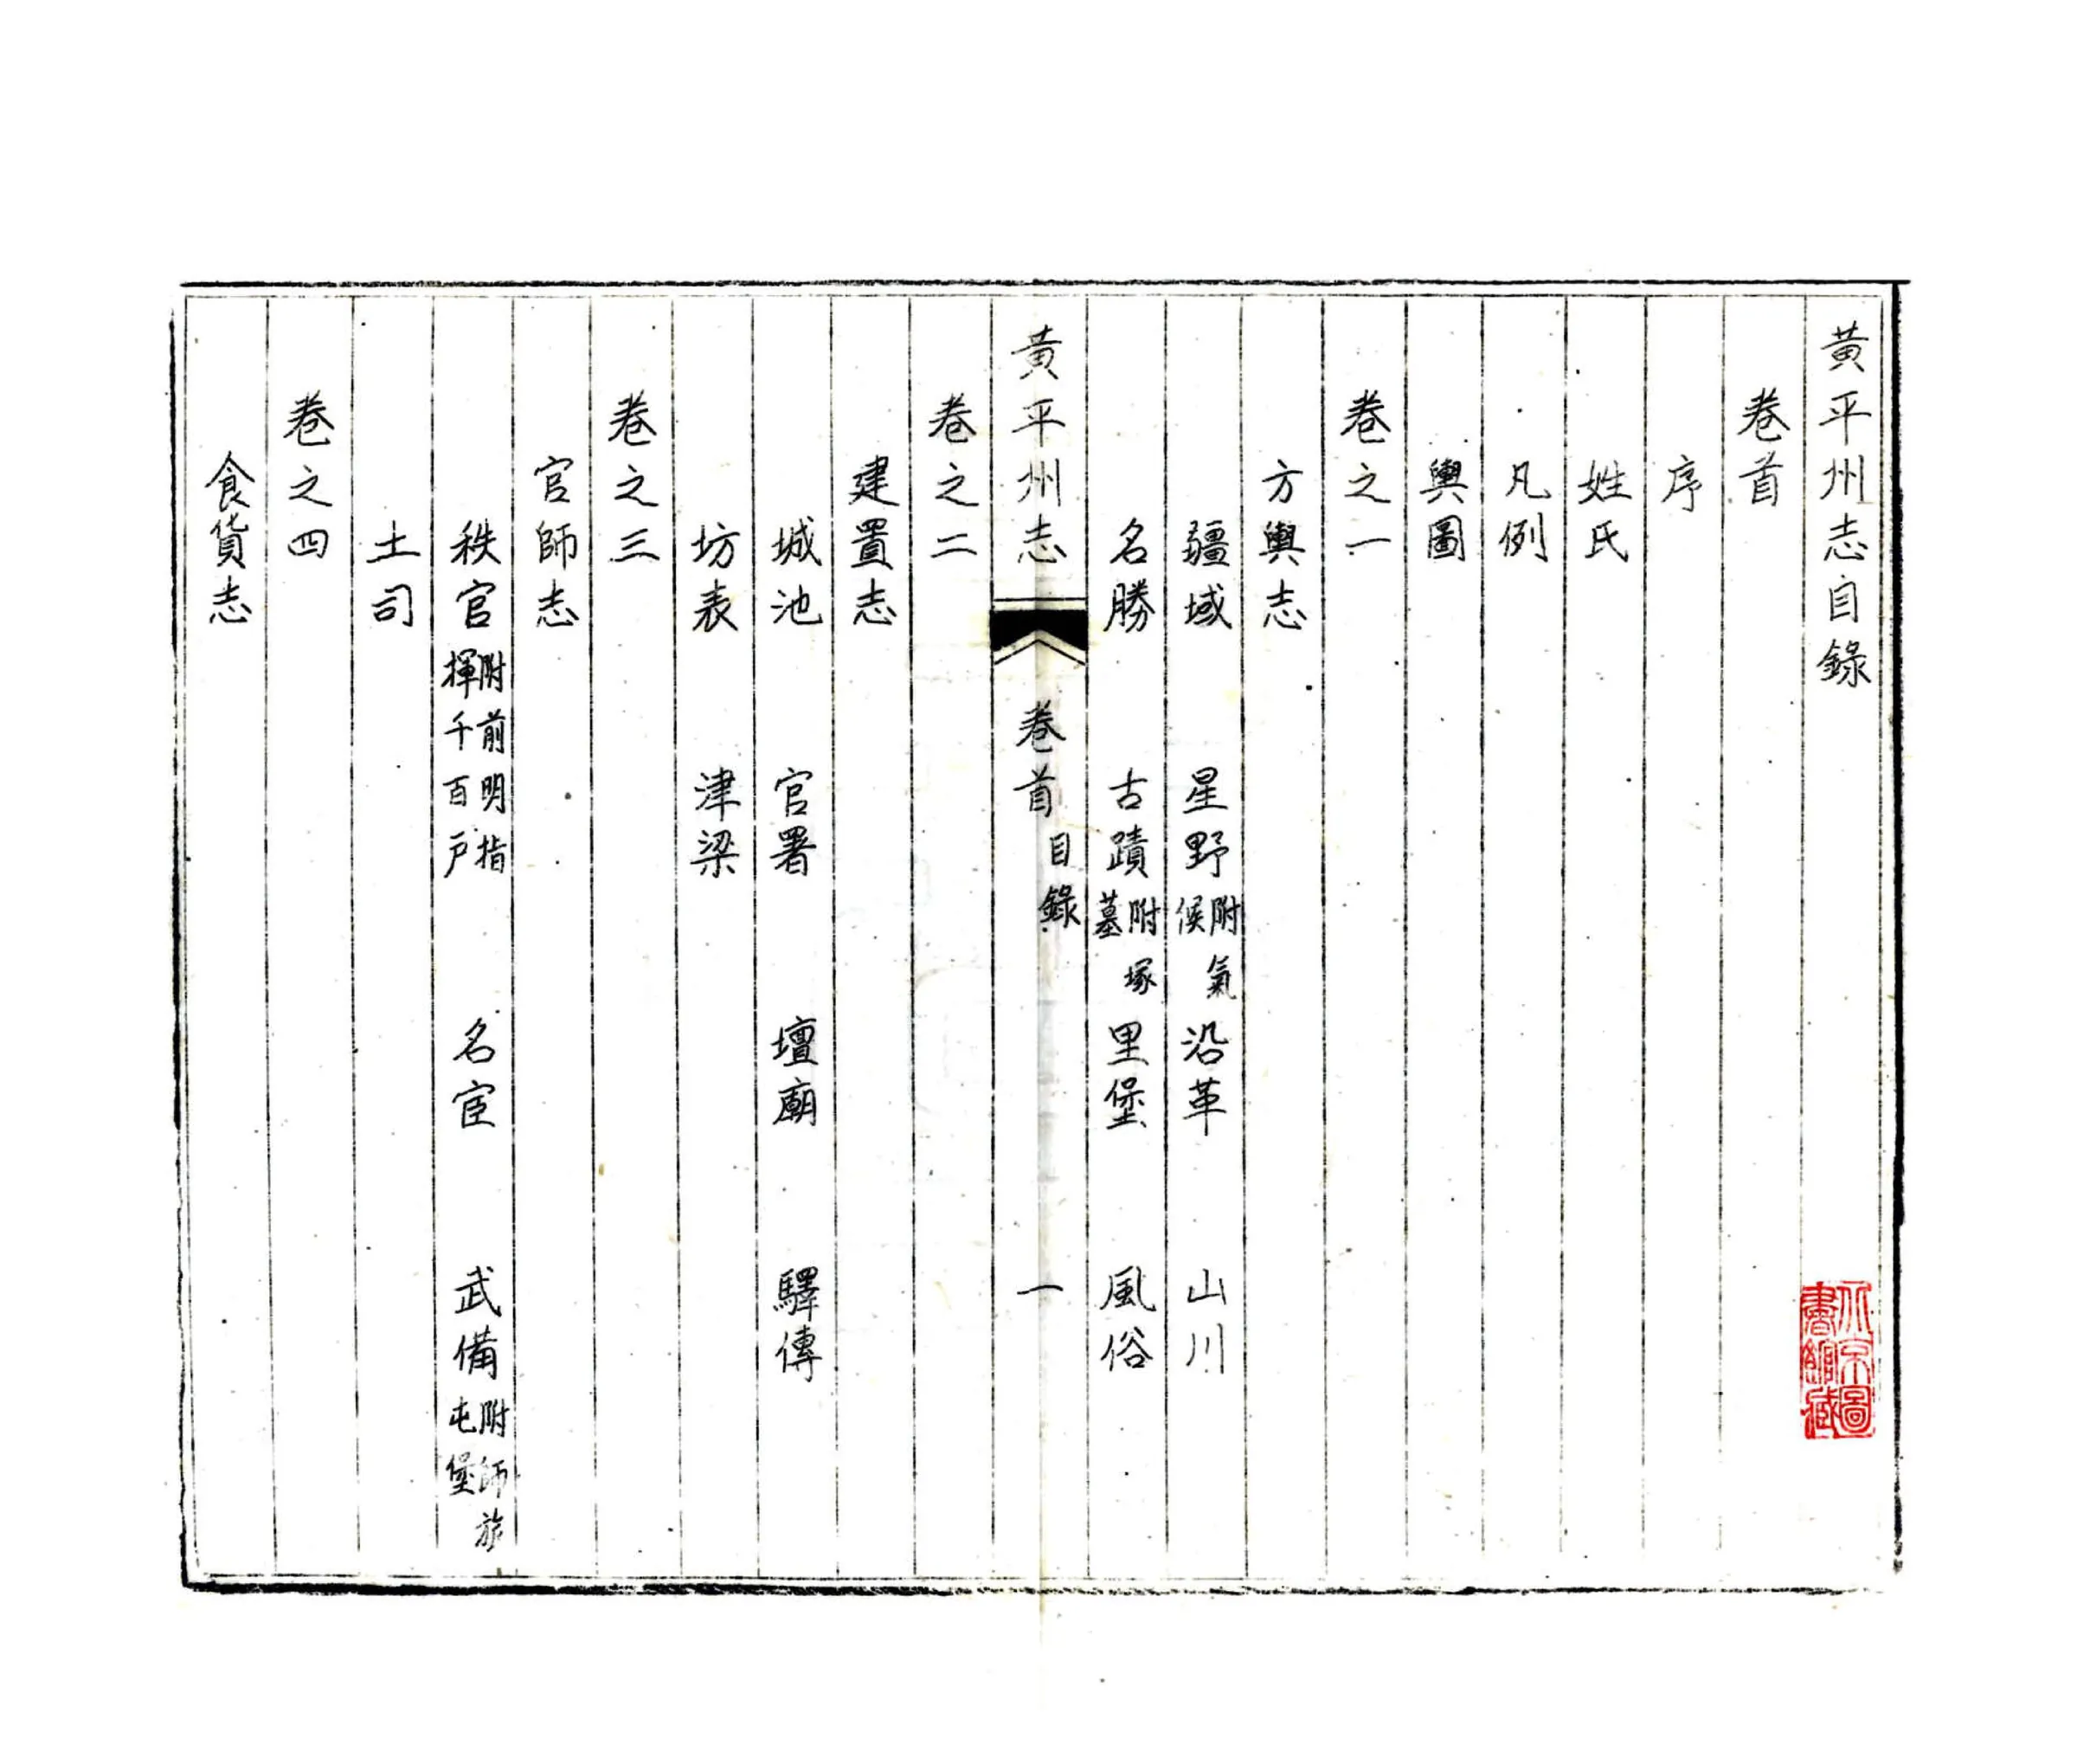 黃平州志目錄
卷首
序
姓氏
凡例
輿圖
卷之一
方輿志
疆域 星野 附氣候 沿革 山川
名勝 古蹟 附塚墓 里堡 風俗
黃平州志 卷首 目錄 一
卷之二
建置志
城池 官署 壇廟 驛傳
坊表 津梁
卷之三
官師志
秩官 附前明指揮千百戶 名宦 武備 附師旅屯堡
土司
卷之四
食貨志
北京圖書館藏